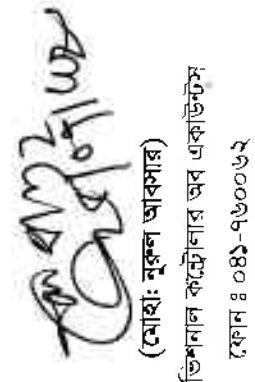 (মোহা: নুরুল আবসার)
ভিশনাল কন্ট্রোলার অব একাউন্টস
ফোন ঃ ০৪১-৭৬০০৬২